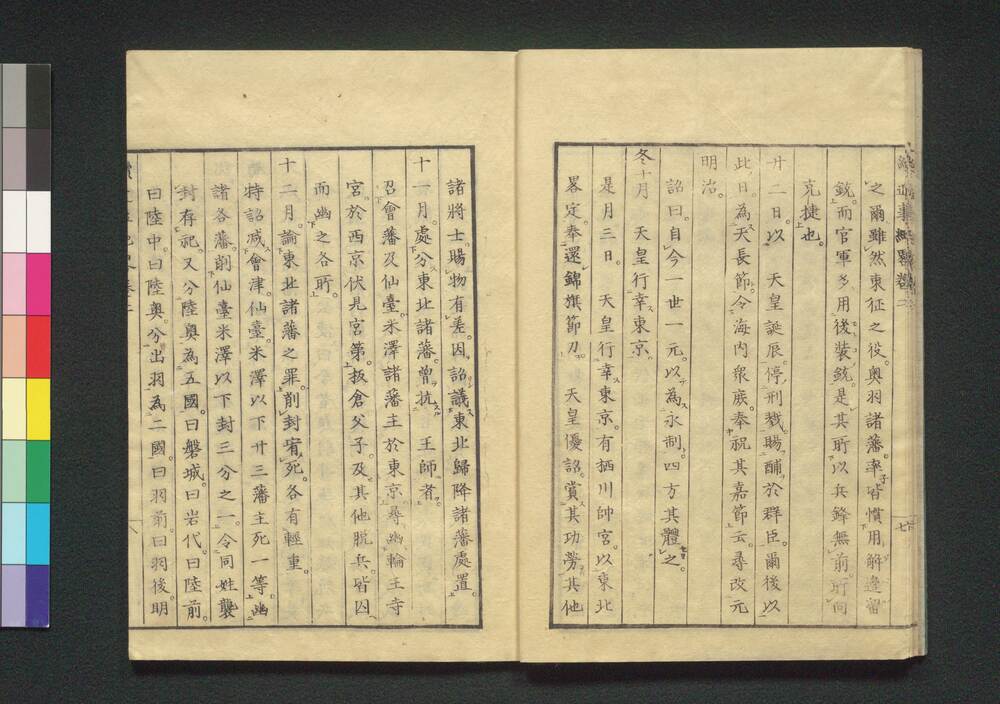 之爾雖然東征之役。奧羽諸藩。率皆慣用解逢留
銃。而官軍多用後裝銃。是其所以兵鋒無前所向
克捷也。
廿二日。以　天皇誕辰。停刑戮。賜酺於群臣。爾後以
此日為天長節。令海內衆庶奉祝其嘉節云。尋改元
明治。
詔曰。自今一世一元。以為永制。四方其體之。
冬十月　天皇行幸東京。
是月三日。　天皇行幸東京。有栖川帥宮。以東北
畧定。奉還錦旗節刀。　天皇優詔。賞其功勞。其他
諸將士。賜物有差。因詔議東北歸降諸藩處置。
十一月。處分東北諸藩。曾抗　王師者。
召會藩及仙臺。米澤諸藩主於東京。尋幽輪王寺
宮。於西京伏見宮第。板倉父子。及其他脱兵。皆囚
而幽之各所。
十二月。論東北諸藩之罪。削封宥死。各有輕重。
特詔减會津。仙臺。米澤以下廿三藩主死一等。幽
諸各藩。削仙臺米澤以下封三分之一。令同姓襲
封存祀。又分陸奧為五國。曰磐城。曰岩代。曰陸前。
曰陸中。曰陸奧。分出羽為二國。曰羽前。曰羽後。明
七